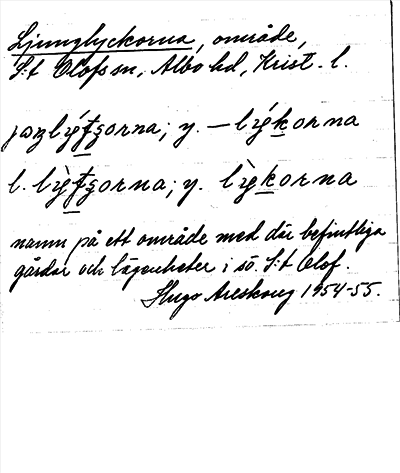 Ljunglyckorna, område,
S:t Olofs sn, Albo hd, Krist. l.
lýțșorna; y. — lýkorna
l. lỳțșorna; y. lỳkorna
namn på ett område med där befintliga
gårdar och lägenheter i sö. S:t Olof.
Hugo Areskoug 1954-55.